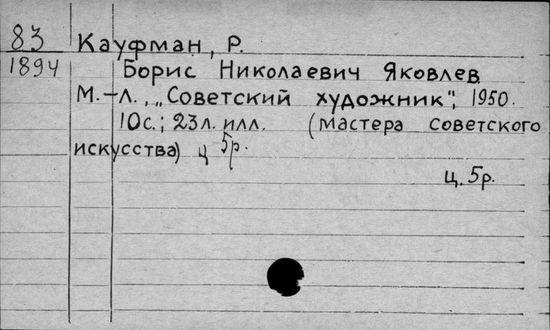 83 Кауфман, Р.
1894 Борис Николаевич Яковлев
М.-Л., „Советский художник", 1950.
10с.; 23л. илл. (мастера советского
искусства) ц 5р.
ц. 5р.